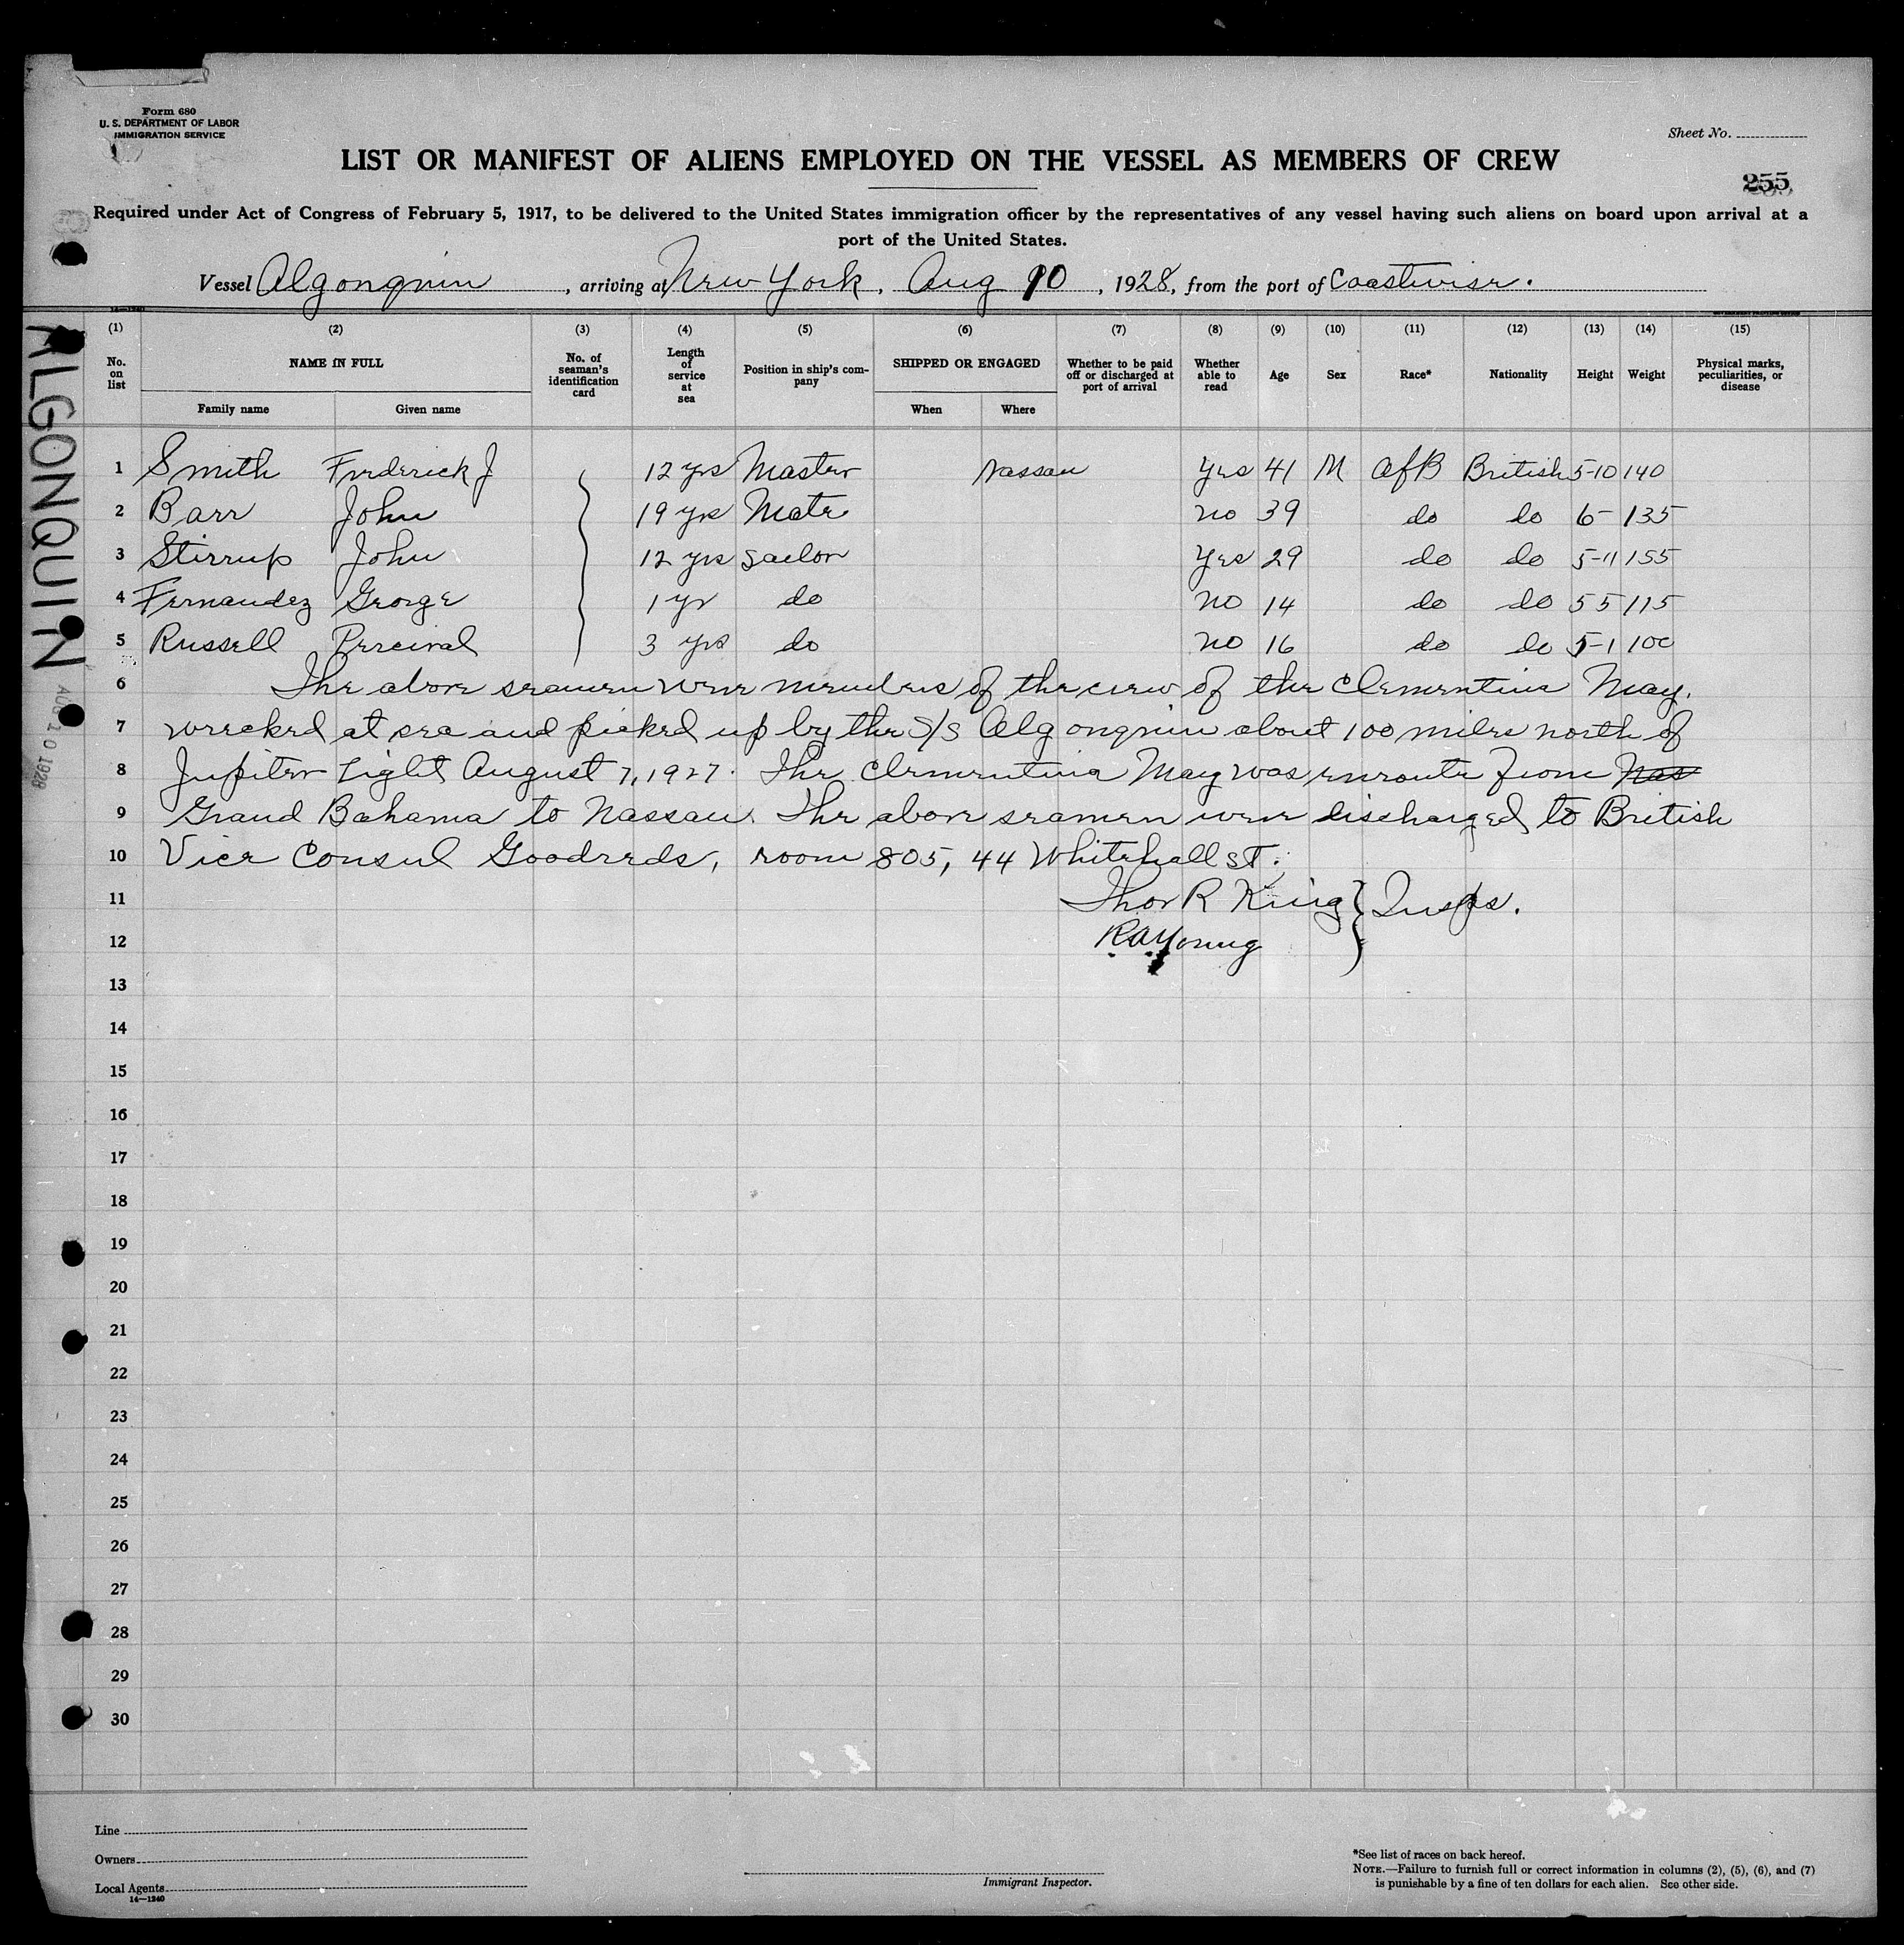 Form 680
U. S. DEPARTMENT OF LABOR
IMMIGRATION SERVICE
Sheet No.
LIST OR MANIFEST OF ALIENS EMPLOYED ON THE VESSEL AS MEMBERS OF CREW
255
Required under Act of Congress of February 5, 1917, to be delivered to the United States immigration officer by the representatives of any vessel having such aliens on board upon arrival at a
port of the United States.
Vessel Algonquin, arriving at New York, Aug 10, 1928, from the port of Coastwise.
ALGONQUIN
AUG 10 1928
(1) (2) (3) (4) (5) (6) (7) (8) (9) (10) (11) (12) (13) (14) (15)
No. on list
NAME IN FULL
Family name Given name
No. of seaman's identification card
Length of service at sea
Position in ship's company
SHIPPED OR ENGAGED
When Where
Whether to be paid off or discharged at port of arrival
Whether able to read
Age
Sex
Race*
Nationality
Height
Weight
Physical marks, peculiarities, or disease
1 Smith Frederick J 12 yrs Master Nassau Yes 41 M AfB British 5-10 140
2 Barr John 19 yrs Mate no 39 do do 6- 135
3 Stirrup John 12 yrs Sailor Yes 29 do do 5-11 155
4 Fernandez George 1 yr do no 14 do do 5 5 115
5 Russell Percival 3 yrs do no 16 do do 5-1 100
6 The above seamen were members of the crew of the Clementina May.
7 wrecked at sea and picked up by the S/S Algonquin about 100 miles north of
8 Jupiter Light August 7, 1927. The Clementina May was enroute from Nas
9 Grand Bahama to Nassau. The above seamen were discharged to British
10 Vice Consul Goodreds, room 805, 44 Whitehall St.
11 Thos R King } Insps.
12 RA Young
13
14
15
16
17
18
19
20
21
22
23
24
25
26
27
28
29
30
Line
Owners
Local Agents
14—1240
Immigrant Inspector.
*See list of races on back hereof.
NOTE.—Failure to furnish full or correct information in columns (2), (5), (6), and (7)
is punishable by a fine of ten dollars for each alien. See other side.